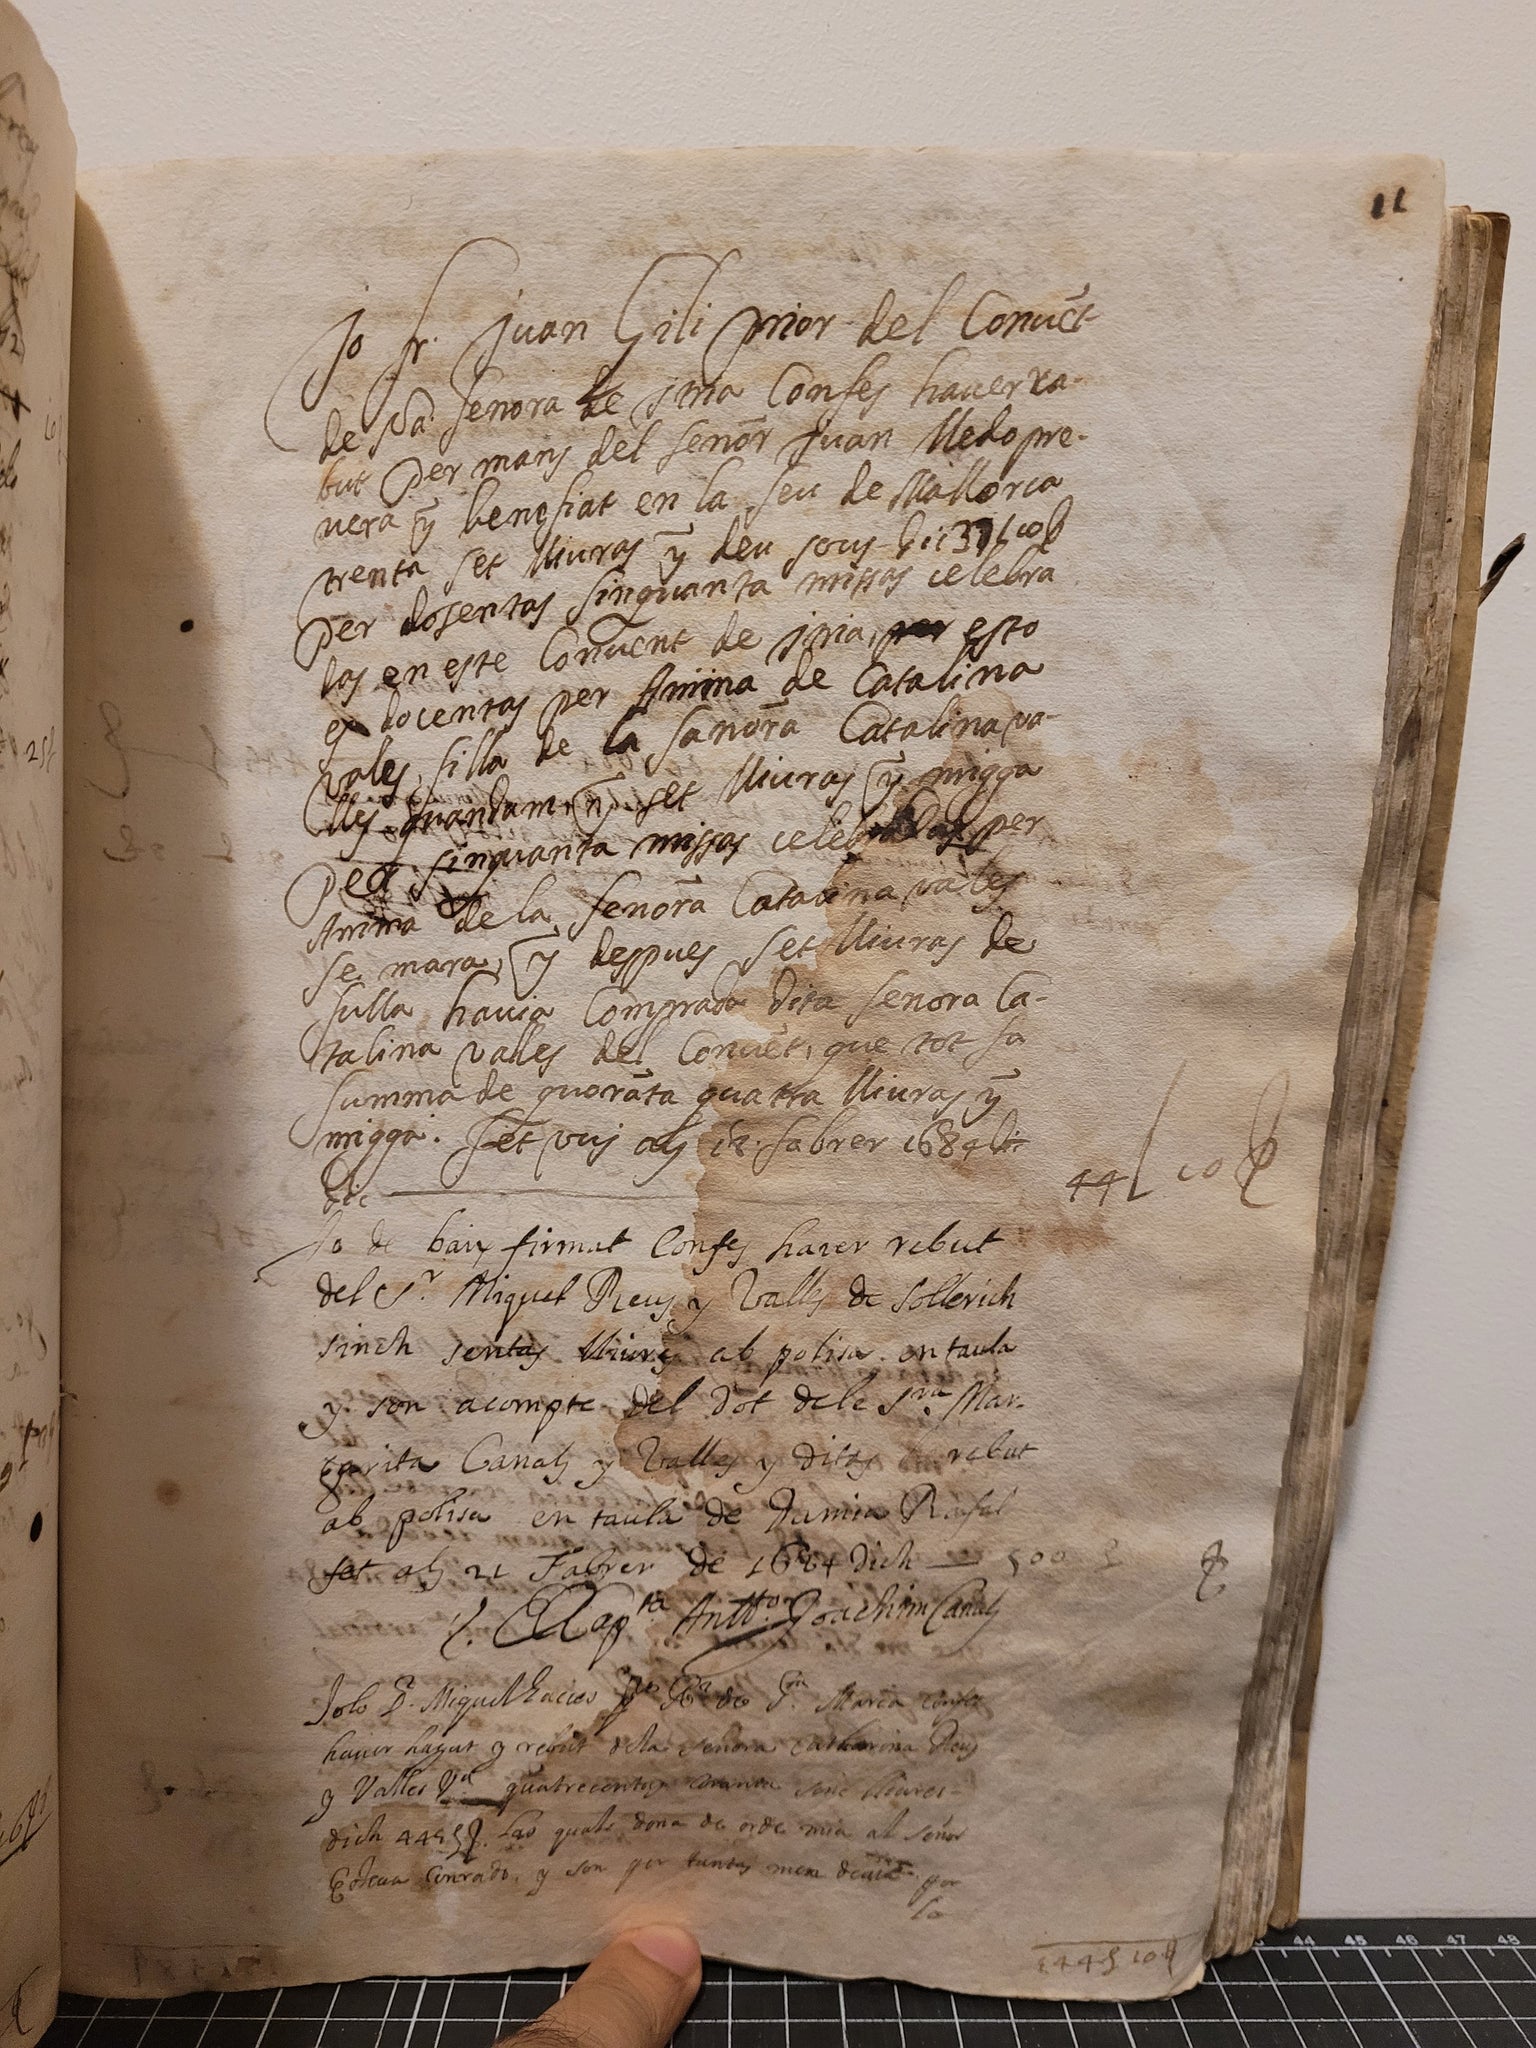 11
Jo fr. Juan Gili prior del Convēt
de Nā. Senora de Jnca Confes haver ra-
but per mans del senōr Juan Mledo pre-
vera ȳ benefiat en la seu de Mallorca
trenta set lliuras ȳ deu sous
per dosentas sinquanta missas celebra
das en este Convent de Jnca, esto
es docentas per Anima de Catalina
vales filla de la sanōra Catalina va-
lles quandam, ȳ set lliuras ȳ migga
per sinquanta missas celebradas per
Anima de la senōra Catalina vales
se mara, ȳ despues set lliuras de
sulla havia Comprada dita senora Ca-
talina valles del Convēt, que tot fa
summa de quorāta quatra lliuras ȳ
migga. Fet vuj als 12 fabrer 1684
dic — 44 l 10 ß
Jo de baix firmat Confes haver rebut
del Sr. Miquel Reus y Valls de Sollerich
sinch sentas lliures ab polisa en taula
y son acompte del Dot dele Sra. Mar-
garita Canals y Valls y ditas he rebut
ab polisa en taula de Damia Rafal
fet als 21 Fabrer de 1684 dich — 500
Capta Antto. Joachim Canals
Miquel de Maria confes
haver hagut y rebut dela señora Catharina Reus
y Valles Va. quatrecentas lliures
dich 445 Las quals dona de orde mia al señor
Esteva Conrado, y son per tantas per
la
1445 10 ß